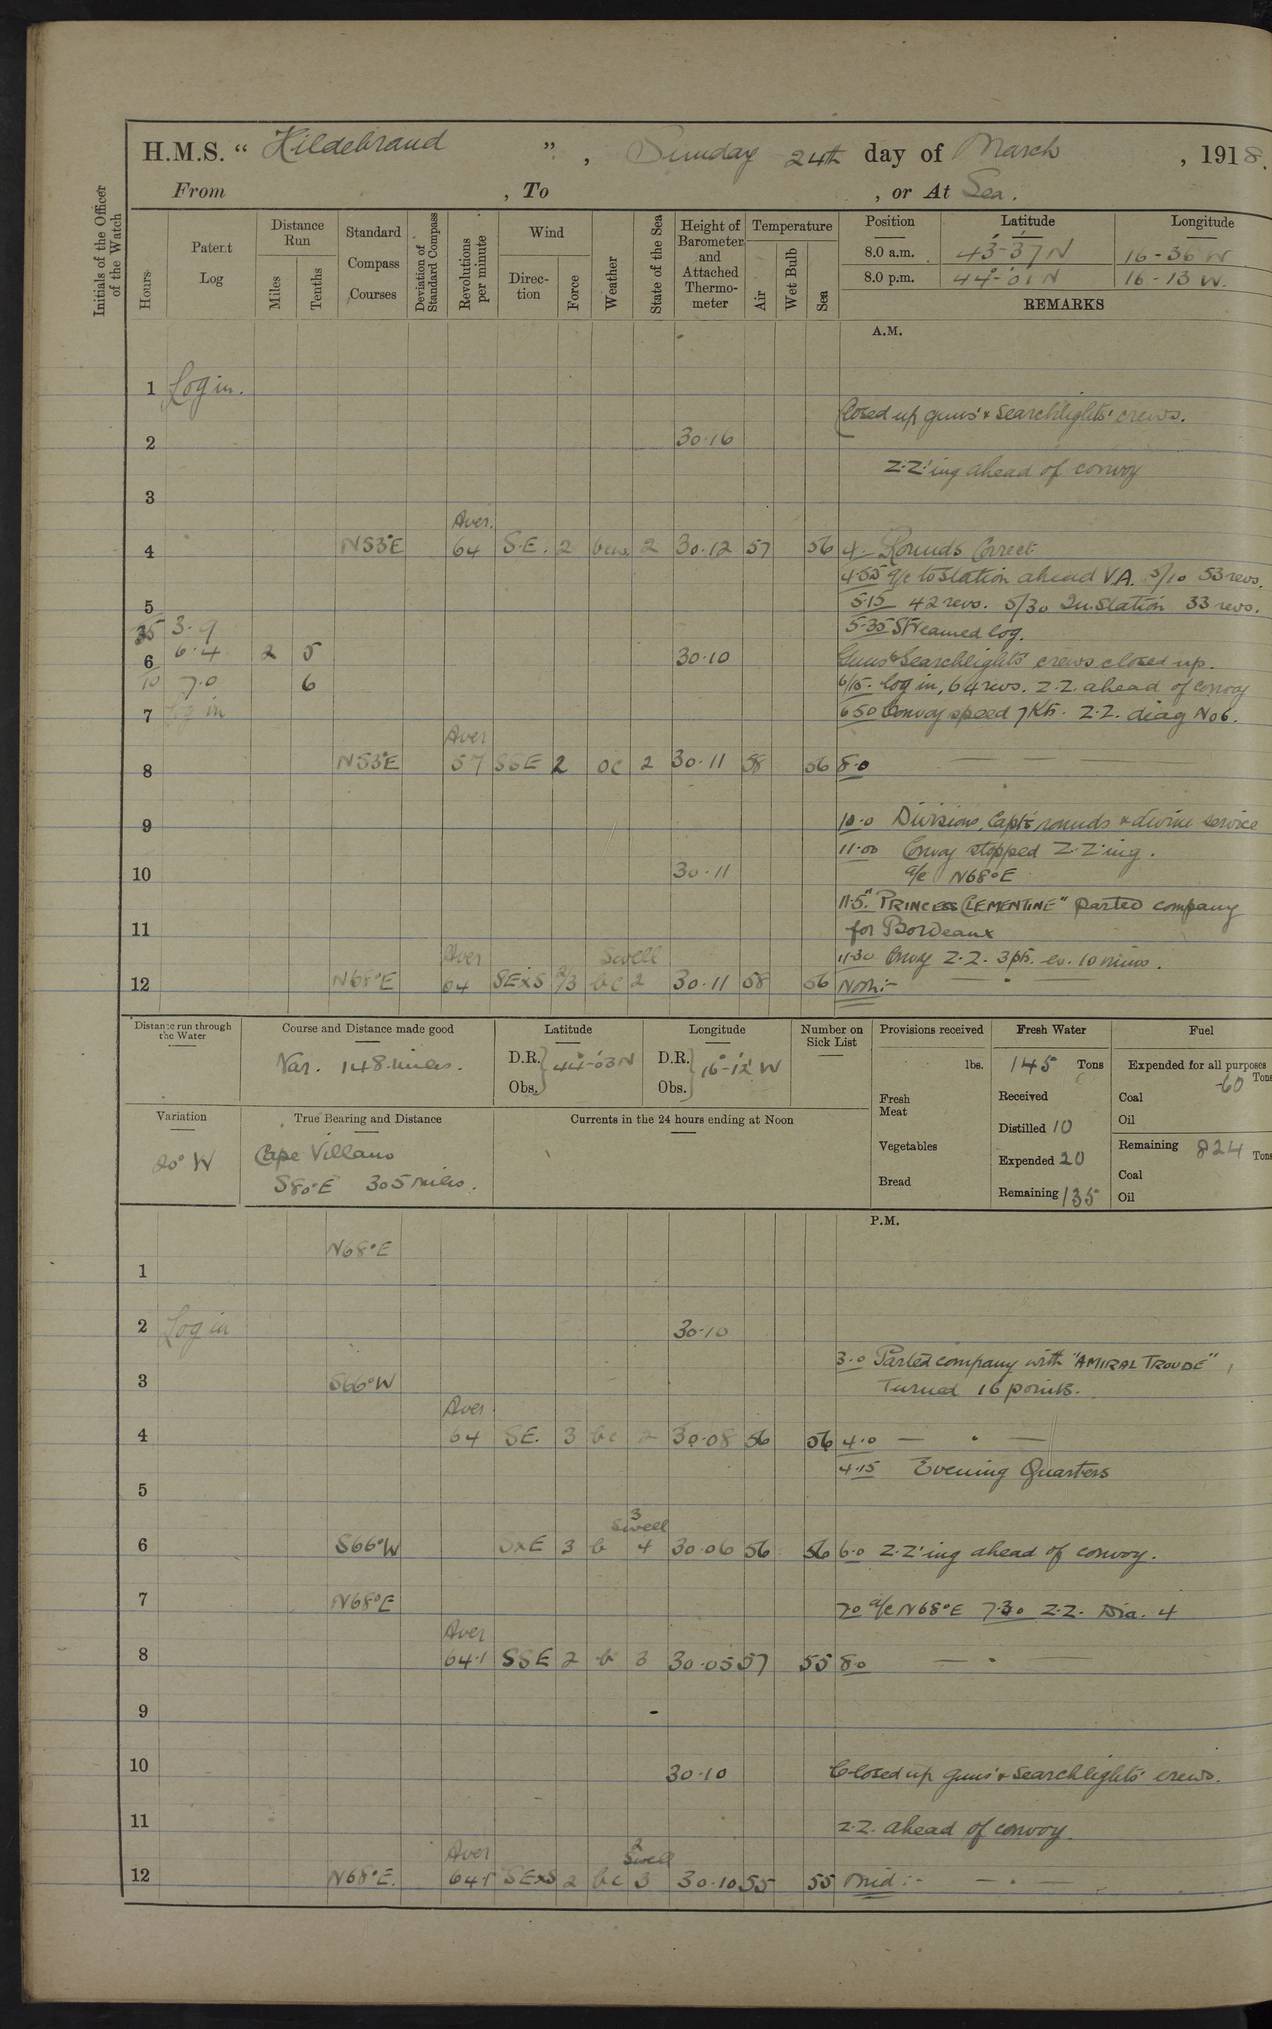 H.M.S. “ Hildebrand ” , Sunday 24th day of March , 1918.
From , To , or At Sea.
Initials of the Officer of the Watch
Hours
Patent Log
Distance Run
Miles
Tenths
Standard Compass Courses
Deviation of Standard Compass
Revolutions per minute
Wind
Direction
Force
Weather
State of the Sea
Height of Barometer and Attached Thermometer
Temperature
Air
Wet Bulb
Sea
Position Latitude Longitude
8.0 a.m. 43°-37' N 16-36 W
8.0 p.m. 44°-01' N 16-13 W.
REMARKS
A.M.
1 Log in.
Closed up guns' & Searchlights' crews.
2 30.16
Z.Z'ing ahead of convoy
3
Aver.
4 N53°E 64 S.E. 2 2 30.12 57 56 4. Rounds Correct
4.55 a/c to Station ahead V.A. 5/10 53 revs.
5 5.15 42 revs. 5/30 In Station 33 revs.
35 3.9 5.35 Streamed log.
6 6.4 2 5 30.10 Guns & Searchlights' crews closed up.
10 7.0 6 6/15. Log in, 64 revs. Z.Z. ahead of convoy
7 Log in 6.50 Convoy speed 7 Kts. Z.Z. diag No 6.
Aver
8 N53°E 57 SSE 2 oc 2 30.11 58 56 8.0 — —
9 10.0 Divisions, Capt's rounds & divine service
11.00 Convoy stopped Z.Z'ing.
10 30.11 a/c N68°E
11.5. "PRINCESS CLEMENTINE" parted company
11 for Bordeaux
Aver Swell 11.30 Convoy Z.Z. 3 pts. ev. 10 mins.
12 N68°E 64 SExS 2/3 bc 2 30.11 58 56 Noon:-
Distance run through the Water
Course and Distance made good
Var. 148 miles.
Latitude
D.R. Obs. 44°-03' N
Longitude
D.R. Obs. 16°-12' W
Number on Sick List
Provisions received
lbs.
Fresh Meat
Vegetables
Bread
Fresh Water
145 Tons
Received
Distilled 10
Expended 20
Remaining 135
Fuel
Expended for all purposes
60 Tons
Coal
Oil
Remaining 824 Tons
Coal
Oil
Variation
20° W
True Bearing and Distance
Cape Villano
S80°E 305 miles.
Currents in the 24 hours ending at Noon
P.M.
N68°E
1
2 Log in 30.10
3.0 Parted company with "AMIRAL TROUDE",
3 S66°W Turned 16 points.
Aver
4 64 SE. 3 bc 2 30.08 56 56 4.0 — . —
4.15 Evening Quarters
5
3
Swell
6 S66°W SxE 3 b 4 30.06 56 56 6.0 Z.Z'ing ahead of convoy.
7 N68°E 7.0 a/c N68°E 7.30 Z.Z. Dia. 4
Aver
8 64.1 SSE 2 b 3 30.05 57 55 8.0 — . —
9
10 30.10 Closed up guns' & Searchlights' crews.
11 Z.Z. ahead of convoy.
Aver 2 Swell
12 N68°E. SExS 2 bc 3 30.10 55 55 Mid:- — . —